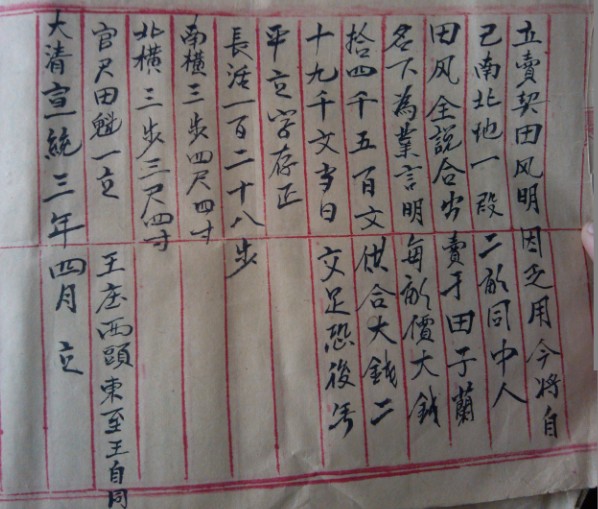 立賣契田风明因乏用今将自
己南北地一段二畝同中人
田风全説合出賣于田子蘭
名下為業言明每畝價大錢
拾四千五百文供合大錢二
十九千文当日交足恐後無
平立字存正
長活一百二十八步
南横三步四尺四寸
北横三步三尺四寸
官尺田魁一立 王庄西頭東至王自同
大清宣統三年四月立